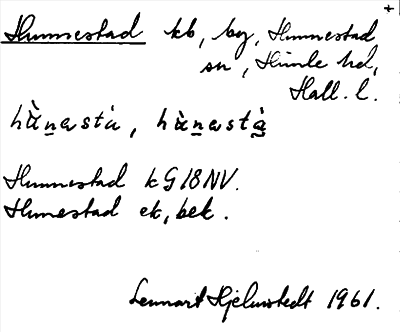 +
Hunnestad kb, by, Hunnestad
sn, Himle hd,
Hall. l.
hùnastà, hùnastà
Hunnestad kG18NV.
Hunestad ek, bek.
Lennart Hjelmstedt 1961.